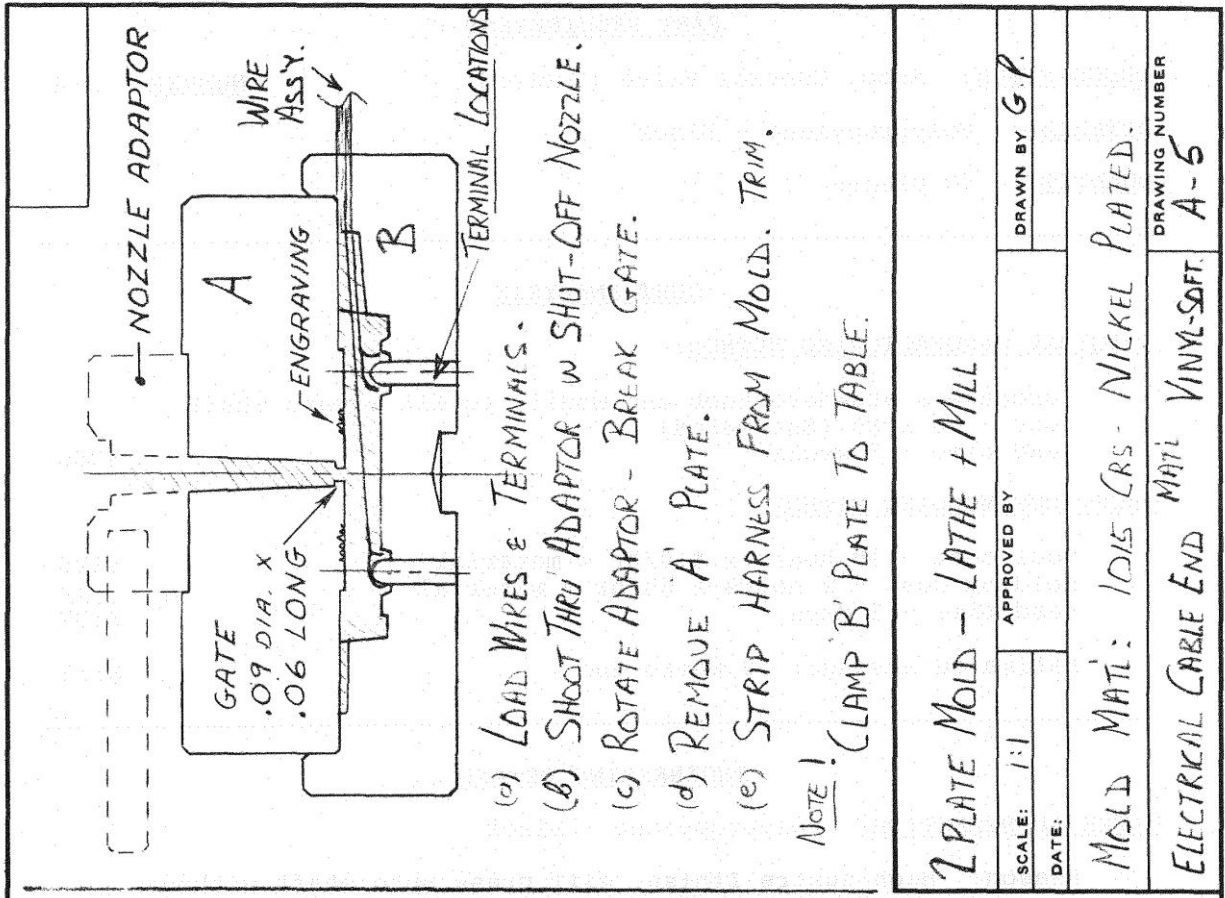 NOZZLE ADAPTOR
WIRE
ASS'Y.
A
ENGRAVING
B
TERMINAL LOCATIONS
GATE
.09 DIA. X
.06 LONG
(a) LOAD WIRES & TERMINALS.
(b) SHOOT THRU ADAPTOR W SHUT-OFF NOZZLE.
(c) ROTATE ADAPTOR - BREAK GATE.
(d) REMOVE 'A' PLATE.
(e) STRIP HARNESS FROM MOLD. TRIM.
NOTE!
CLAMP 'B' PLATE TO TABLE.
2 PLATE MOLD - LATHE + MILL
SCALE: 1:1
APPROVED BY
DRAWN BY G.P.
DATE:
MOLD MATL: 1015 CRS - NICKEL PLATED
ELECTRICAL CABLE END MATL VINYL-SOFT.
DRAWING NUMBER
A-5